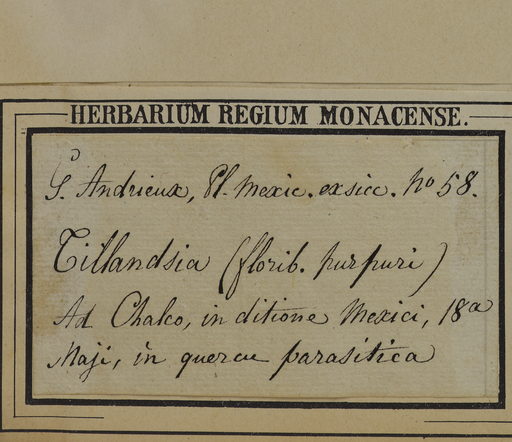 HERBARIUM REGIUM MONACENSE.
G. Andrieux, Pl. Mexic. exsicc. no 58.
Tillandsia (florib. purpuri)
Ad Chalco, in ditione Mexici, 18a
Maji, in quercu parasitica